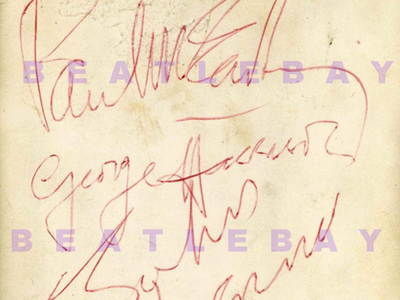 Paul McCartney
BEATLEBAY
George Harrison
John
BEATLEBAY